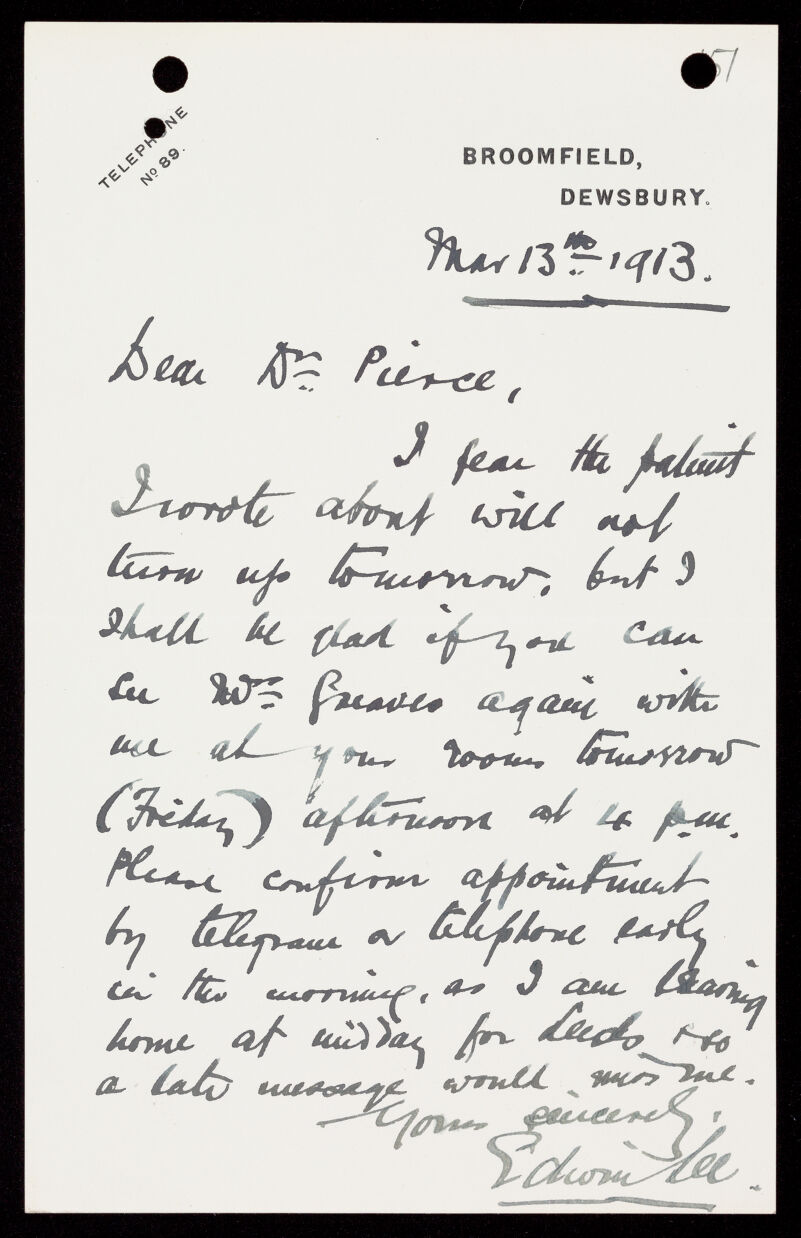 51
TELEPHONE
No 89.
BROOMFIELD,
DEWSBURY.
Mar 13th 1913.
Dear Dr Pierce,
I fear the patient
I wrote about will not
turn up tomorrow, but I
shall be glad if you can
see Mrs Greaves again with
me at your rooms tomorrow
(Friday) afternoon at 4 p.m.
Please confirm appointment
by telegram or telephone early
in the morning, as I am leaving
home at midday for Leeds & so
a late message would miss me.
Yours sincerely,
Edwin Lee.